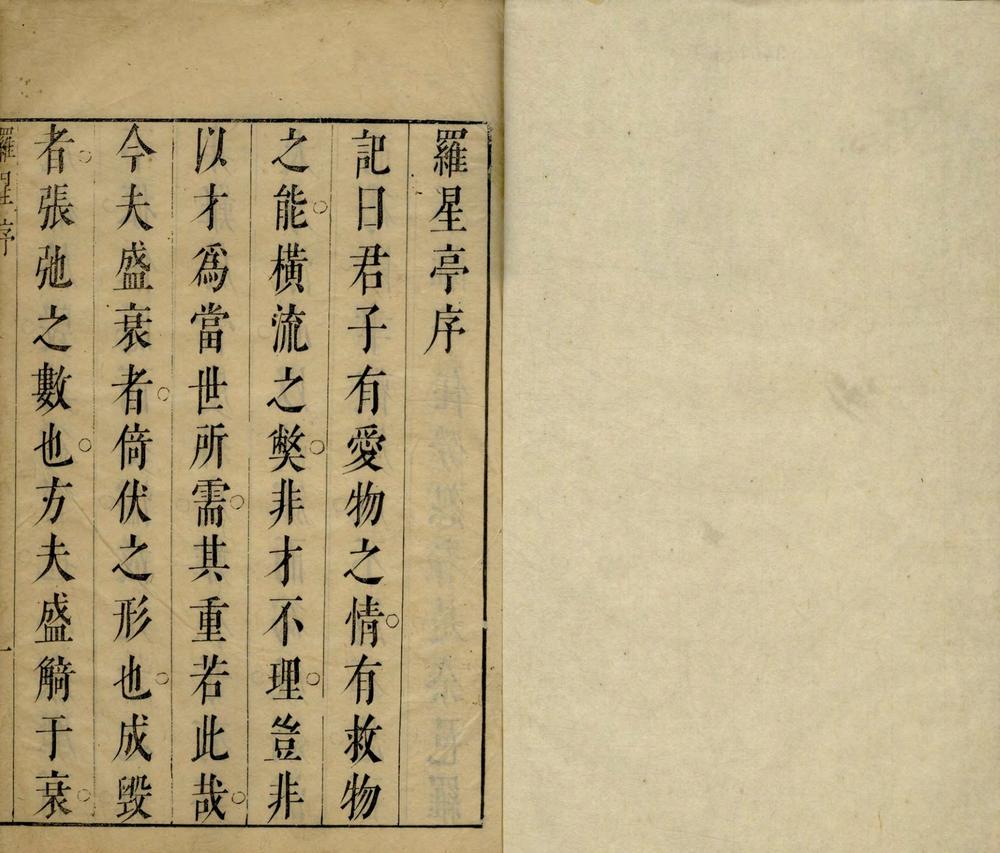 羅星亭序
記曰君子有愛物之情。有救物
之能。橫流之獘。非才不理。豈非
以才爲當世所需。其重若此哉。
今夫盛衰者。倚伏之形也。成毀
者。張弛之數也。方夫盛觭于衰。
羅星序
一